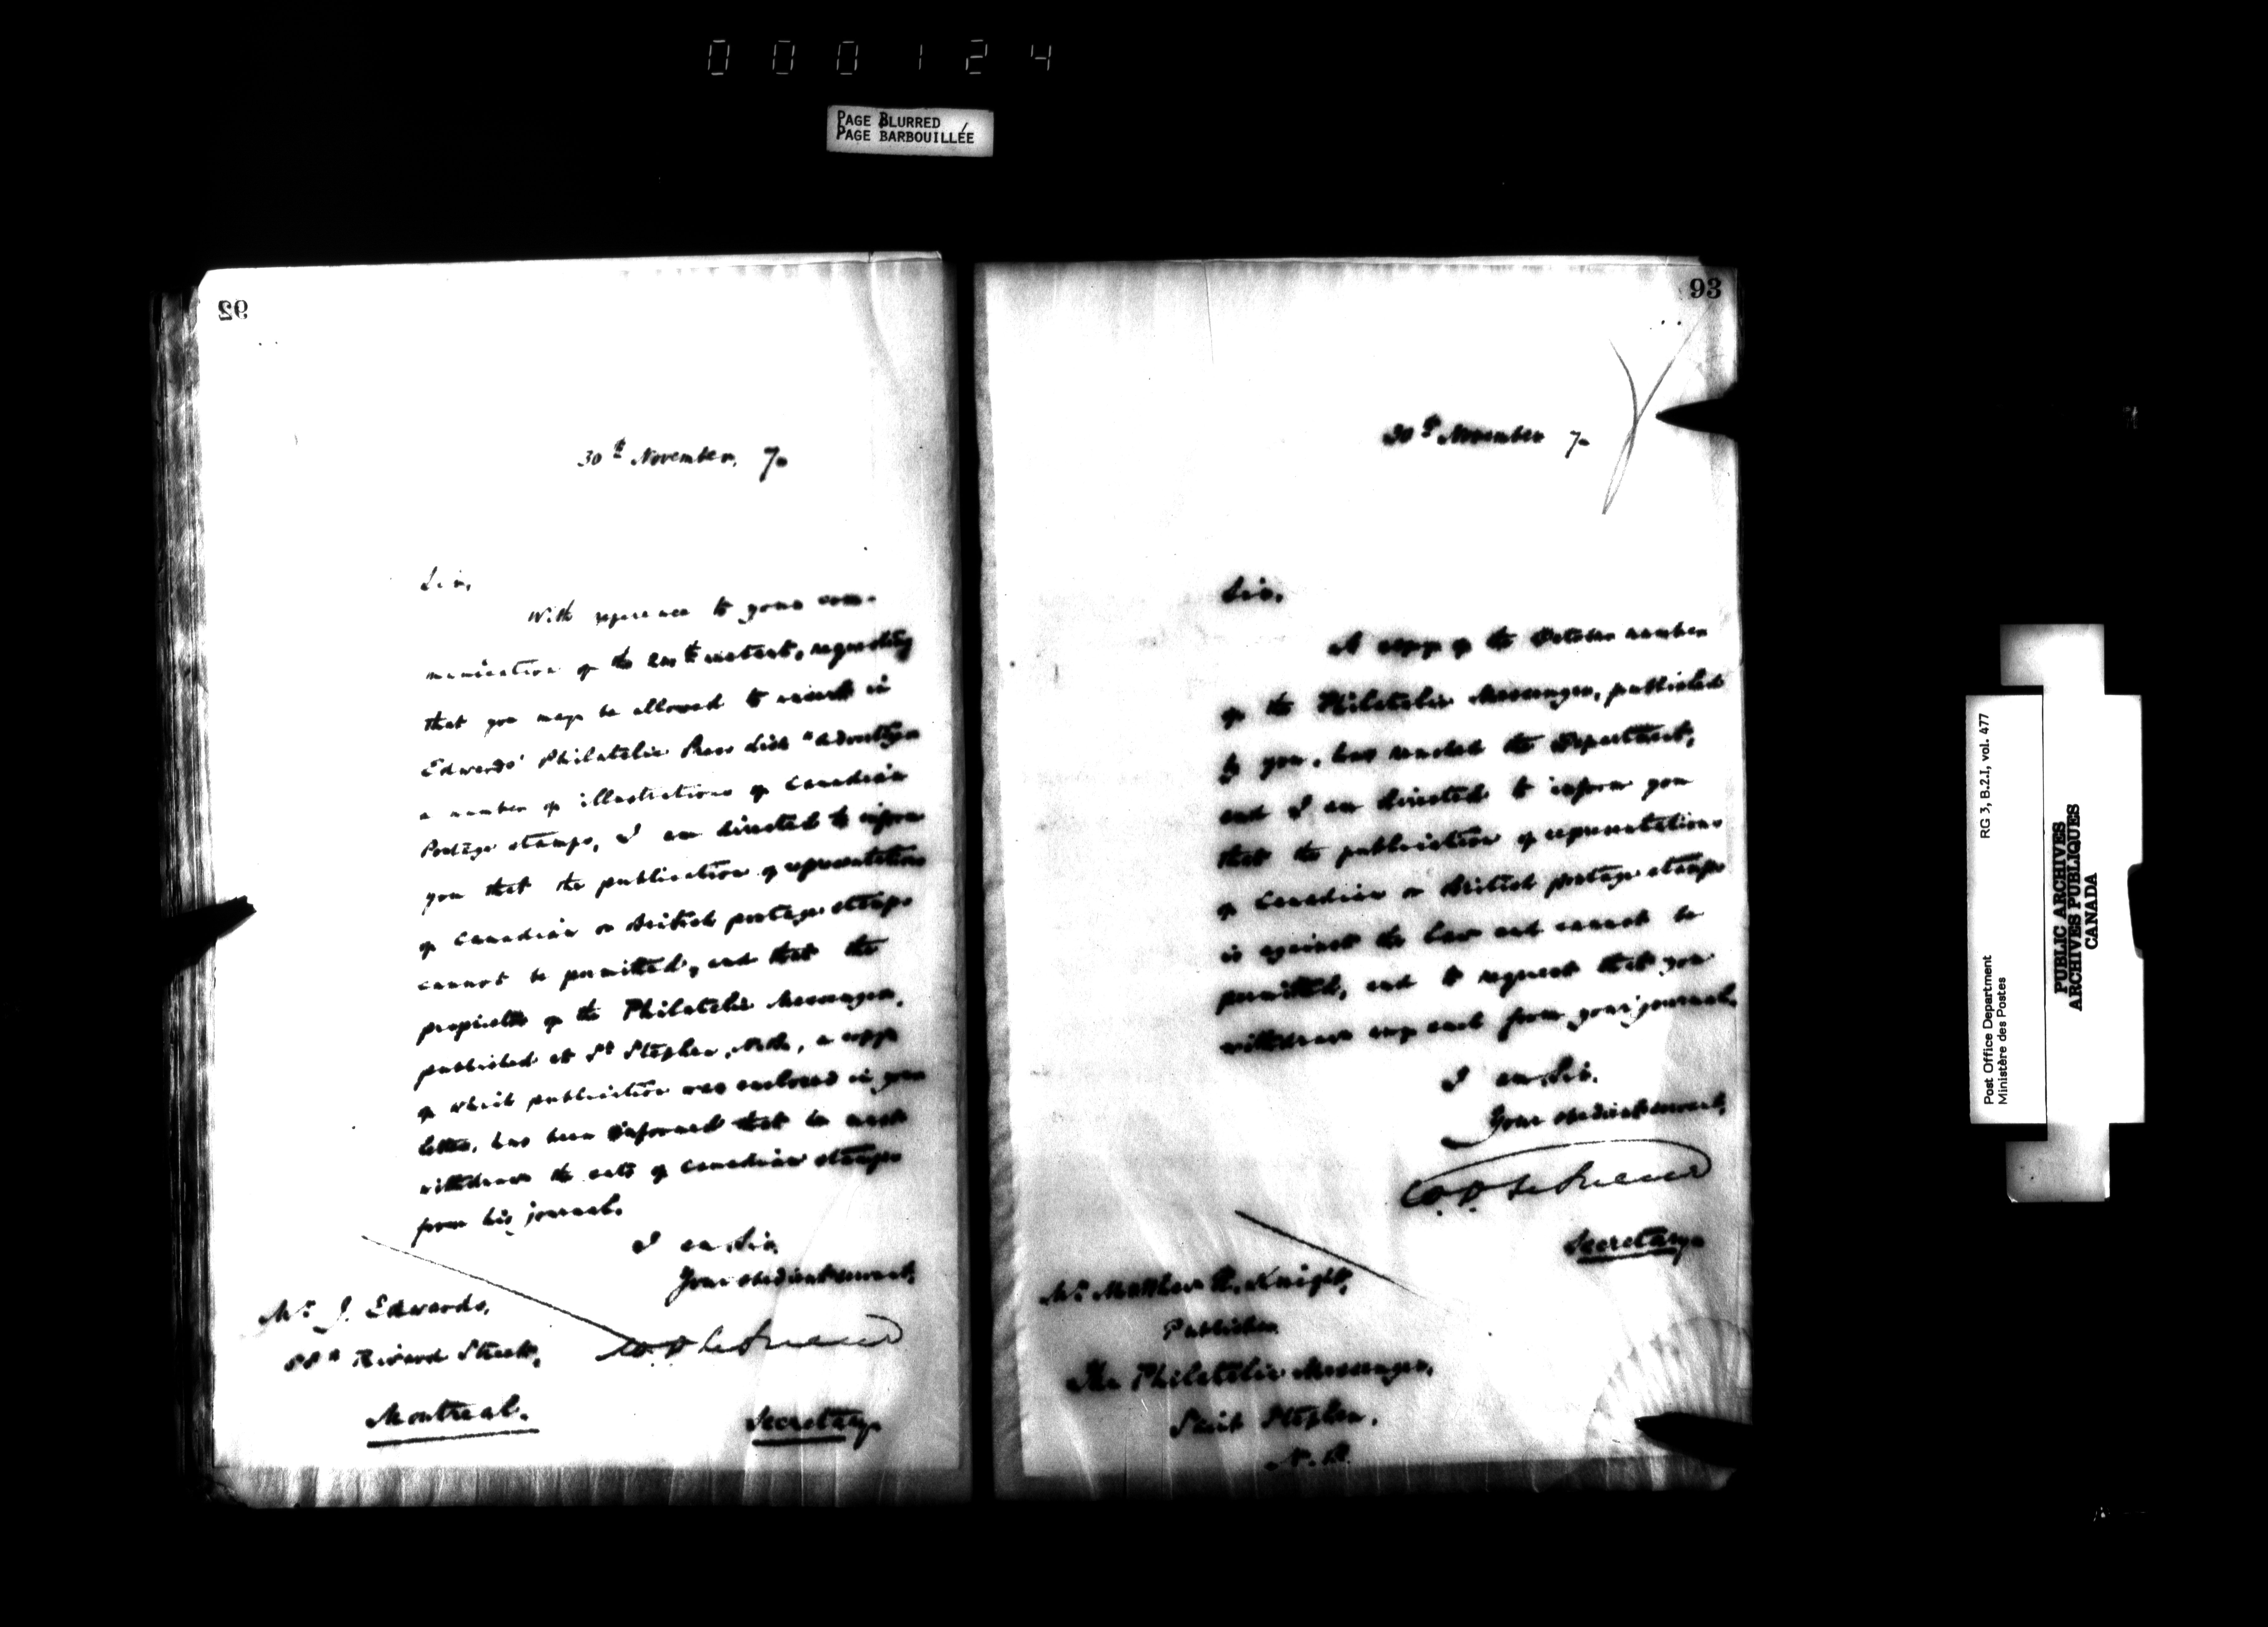 0 0 0 1 2 4
PAGE BLURRED
PAGE BARBOUILLÉE
92
30th November, 70
Sir,
With reference to your com-
munication of the instant, requesting
that you may be allowed to insert in
Edwards' Philatelic Press List
a number of illustrations of Canadian
Postage stamps, I am directed to inform
you that the publication of representations
of Canadian or British postage stamps
cannot be permitted, and that the
proprietor of the Philatelic Messenger,
published at St Stephen, N.B., a copy
of which publication was enclosed in your
letter, has been informed that he must
withdraw the cuts of Canadian stamps
from his journal.
I am Sir,
Your obedient servant,
Mr J. Edwards,
Rivard Street,
Montreal.
Secretary
93
30th November 70
Sir,
A copy of the October number
of the Philatelic Messenger, published
by you, has reached the Department,
and I am directed to inform you
that the publication of representations
of Canadian or British postage stamps
is against the law and cannot be
permitted, and to request that you
withdraw any such from your journal.
I am Sir,
Your obedient servant,
Secretary
Mr Matthew R. Knight,
Publisher
The Philatelic Messenger,
Saint Stephen,
N.B.
Post Office Department
Ministère des Postes
RG 3, B.2.I, vol. 477
PUBLIC ARCHIVES
ARCHIVES PUBLIQUES
CANADA